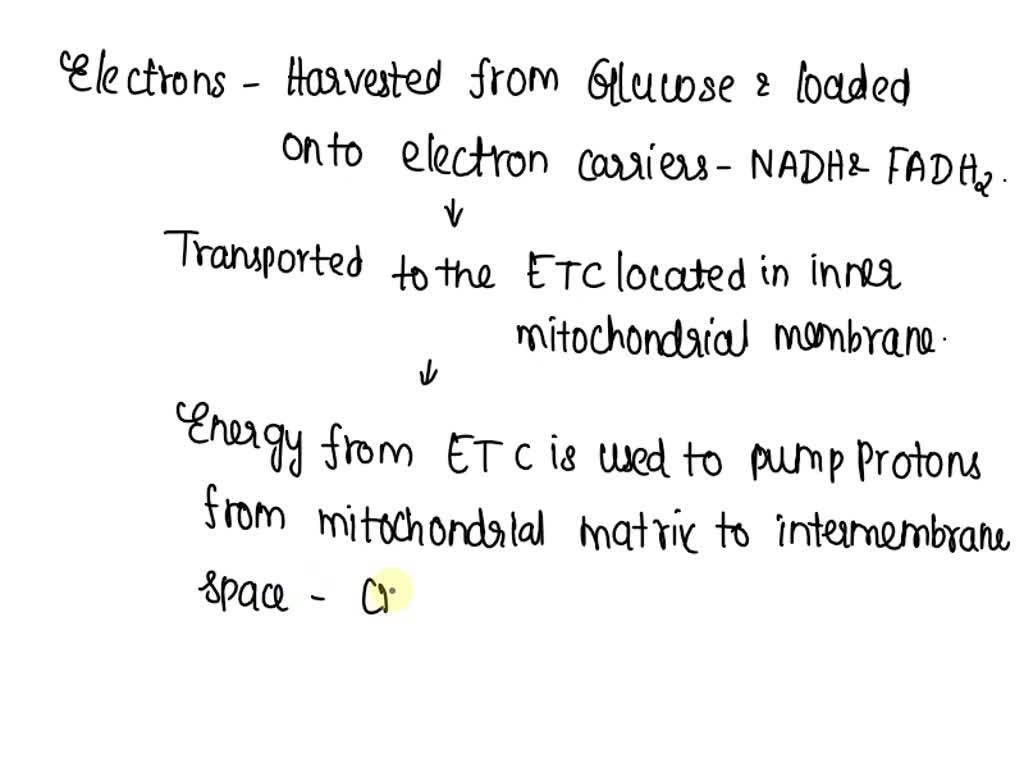 Electrons - Harvested from Glucose & loaded
onto electron carriers - NADH & FADH₂.
↓
Transported to the ETC located in inner
mitochondrial membrane.
↓
Energy from ETC is used to pump protons
from mitochondrial matrix to intermembrane
space -